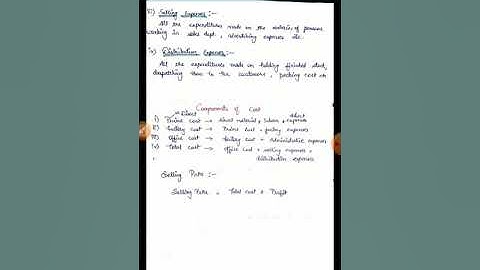 iii) Selling Expenses :-
All the expenditures made on the salaries of persons
working in sales dept., advertising expenses etc.
iv) Distribution Expenses :-
All the expenditures made on holding finished stock,
despatching them to the customers, packing cost etc
Components of Cost
Direct
i) Prime cost → direct material + labour + direct expenses
ii) Factory cost → Prime cost + factory expenses
iii) Office cost → factory cost + administrative expenses
iv) Total cost → office cost + selling expenses +
distribution expenses
Selling Price :-
Selling Price = Total cost + Profit